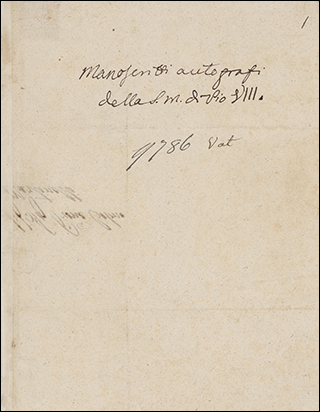 1
Manoscritti autografi
della S. M. di Pio VIII.
9786 Vat